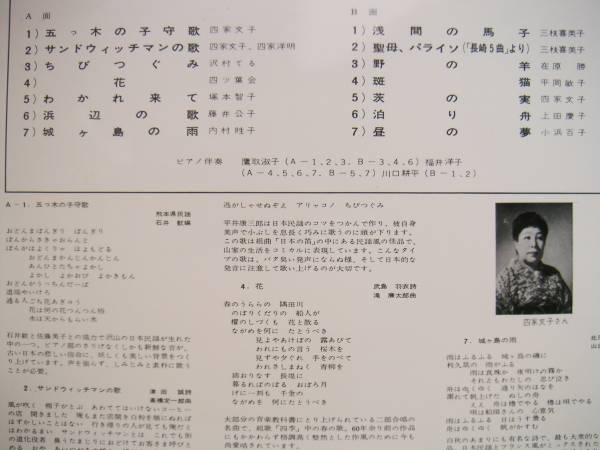 A 面
1) 五っ木の子守歌 四家文子
2) サンドウィッチマンの歌 四家文子、四家洋明
3) ちびつぐみ 沢村てる
4) 花 四ツ葉会
5) わかれ来て 塚本智子
6) 浜辺の歌 藤井公子
7) 城ヶ島の雨 内村胜子
B 面
1) 浅間の馬子 三枝喜美子
2) 聖母、パライソ(「長崎5曲」より) 三枝喜美子
3) 野の羊 在原勝
4) 斑猫 平岡敏子
5) 茨の実 四家文子
6) 泊り舟 上田慶子
7) 昼の夢 小浜百子
ピアノ伴奏 鷹取淑子(A-1、2、3. B-3、4、6)福井洋子
(A-4、5、6、7. B-5、7)川口耕平(B-1、2)
A-1. 五っ木の子守歌
熊本県民謡
石井 歓編
おどんまぼんぎり ぼんぎり
ぼんからさきゃおらんと
ぼんがはよくりゃ はよもどる
おどんまかんじんかんじん
あんひとたちゃよかし
よかし よかおび よかきもん
おどんがうっちんだーば
道端やいけろ
通る人ごち花あぎゅう
花は何の花つんつん椿
水は天からもらい水
石井歓と佐藤美子との協力で沢山の日本民謡が生れた
中の一つ。ピアノ風のさりげなくしかも新鮮な音が、
古い日本の悲しい俗謡に、妖しくも美しい背景をつく
り上げています。声を張らず、しみじみと素朴に歌う
ことが必要。
2. サンドウィッチマンの歌
津田 誠詩
高橋定一郎曲
逃がしゃせぬぞよ アリャコノ ちびつぐみ
平井康三郎は日本民謡のコツをつかんで作り、彼自身
美声で小ぶしを息長く巧みに歌うのに頭が下ります。
この歌は組曲「日本の笛」の中にある民謡風の佳品で、
山家の生活をコミカルに表現しています。こんなタイ
プの歌は、バタ臭い発声にならぬ様、そして日本的な
発音に注意して歌い上げるのが大切です。
4. 花
武島 羽衣詩
滝 廉太郎曲
春のうららの 隅田川
のぼりくだりの 船人が
櫂のしづくも 花と散る
ながめを何に たとうべき
見よやあけぼの 露あびて
われにもの言う 桜木を
見ずや夕ぐれ 手をのべて
われさしまねく 青柳を
錦おりなす 長堤に
暮るればのぼる おぼろ月
げに一刻も 千金の
ながめを何に たとうべき
大部分の音楽教科書にとり上げられている二部合唱の
名曲で、組歌「四季」中の春の歌。60年余り前の作品
にもかかわらず格調高く整然とした作風のために今も
四家文子さん
7. 城ヶ島の雨
雨はふるふる 城ヶ島の磯に
利久鼠の 雨がふる
雨は真珠か 夜明けの霧か
それともわたしの 忍び泣き
舟はゆくゆく 通り矢のはなを
濡れて帆上げた ぬしの舟
ええ 舟は櫓でやる 櫓は唄でやる
唄は船頭さんの 心意気
雨はふるふる 日はうす曇る
舟はゆくゆく 帆がかすむ